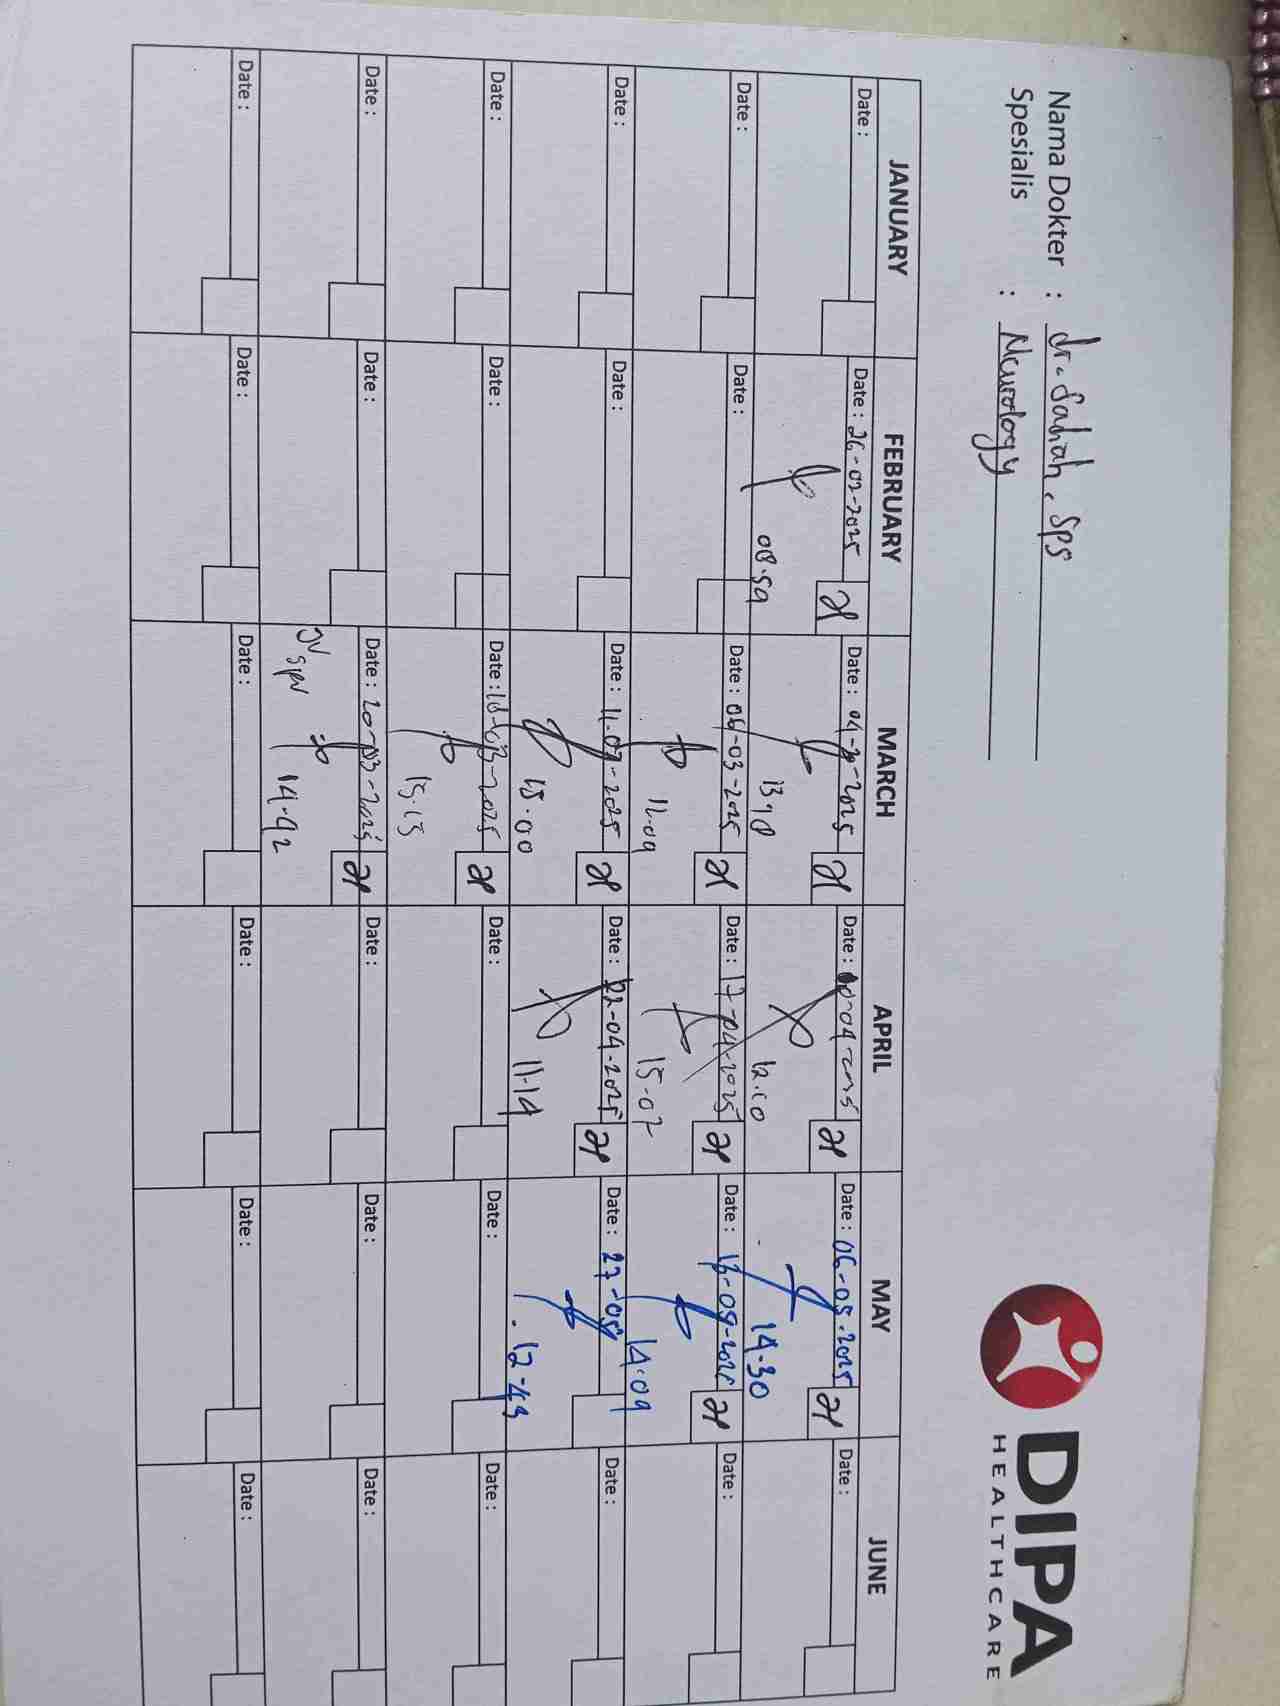 DIPA
HEALTHCARE
Nama Dokter : dr. Sahah. SpS
Spesialis : Neurology
JANUARY FEBRUARY MARCH APRIL MAY JUNE
Date : Date : 26-02-2025 Date : 04- -2025 Date : -04-2025 Date : 06-05.2025 Date :
08.59 13 12.10 14.30
Date : Date : Date : 06-03-2025 Date : 17-04-2025 Date : 13-05-2025 Date :
11.09 15.07 14.09
Date : Date : Date : 11.03-2025 Date : 22-04-2025 Date : 27-05 Date :
15.00 11.14 12.43
Date : Date : Date : 18-03-2025 Date : Date : Date :
15.13
Date : Date : Date : 20-03-2025 Date : Date : Date :
14.42
Date : Date : Date : Date : Date : Date :